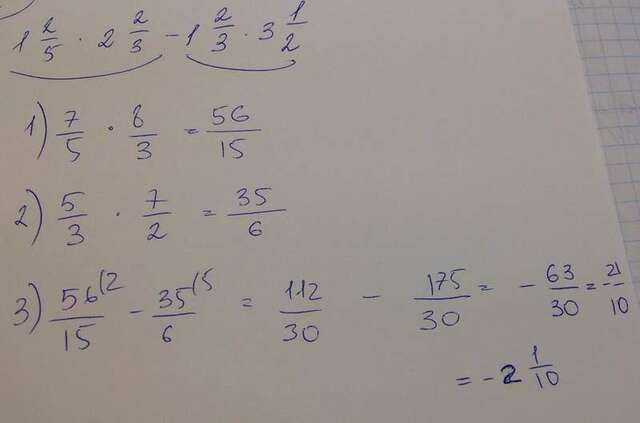 1 2/5 · 2 2/3 - 1 2/3 · 3 1/2
1) 7/5 · 8/3 = 56/15
2) 5/3 · 7/2 = 35/6
3) 56(2/15 - 35(5/6 = 112/30 - 175/30 = - 63/30 = - 21/10
= - 2 1/10